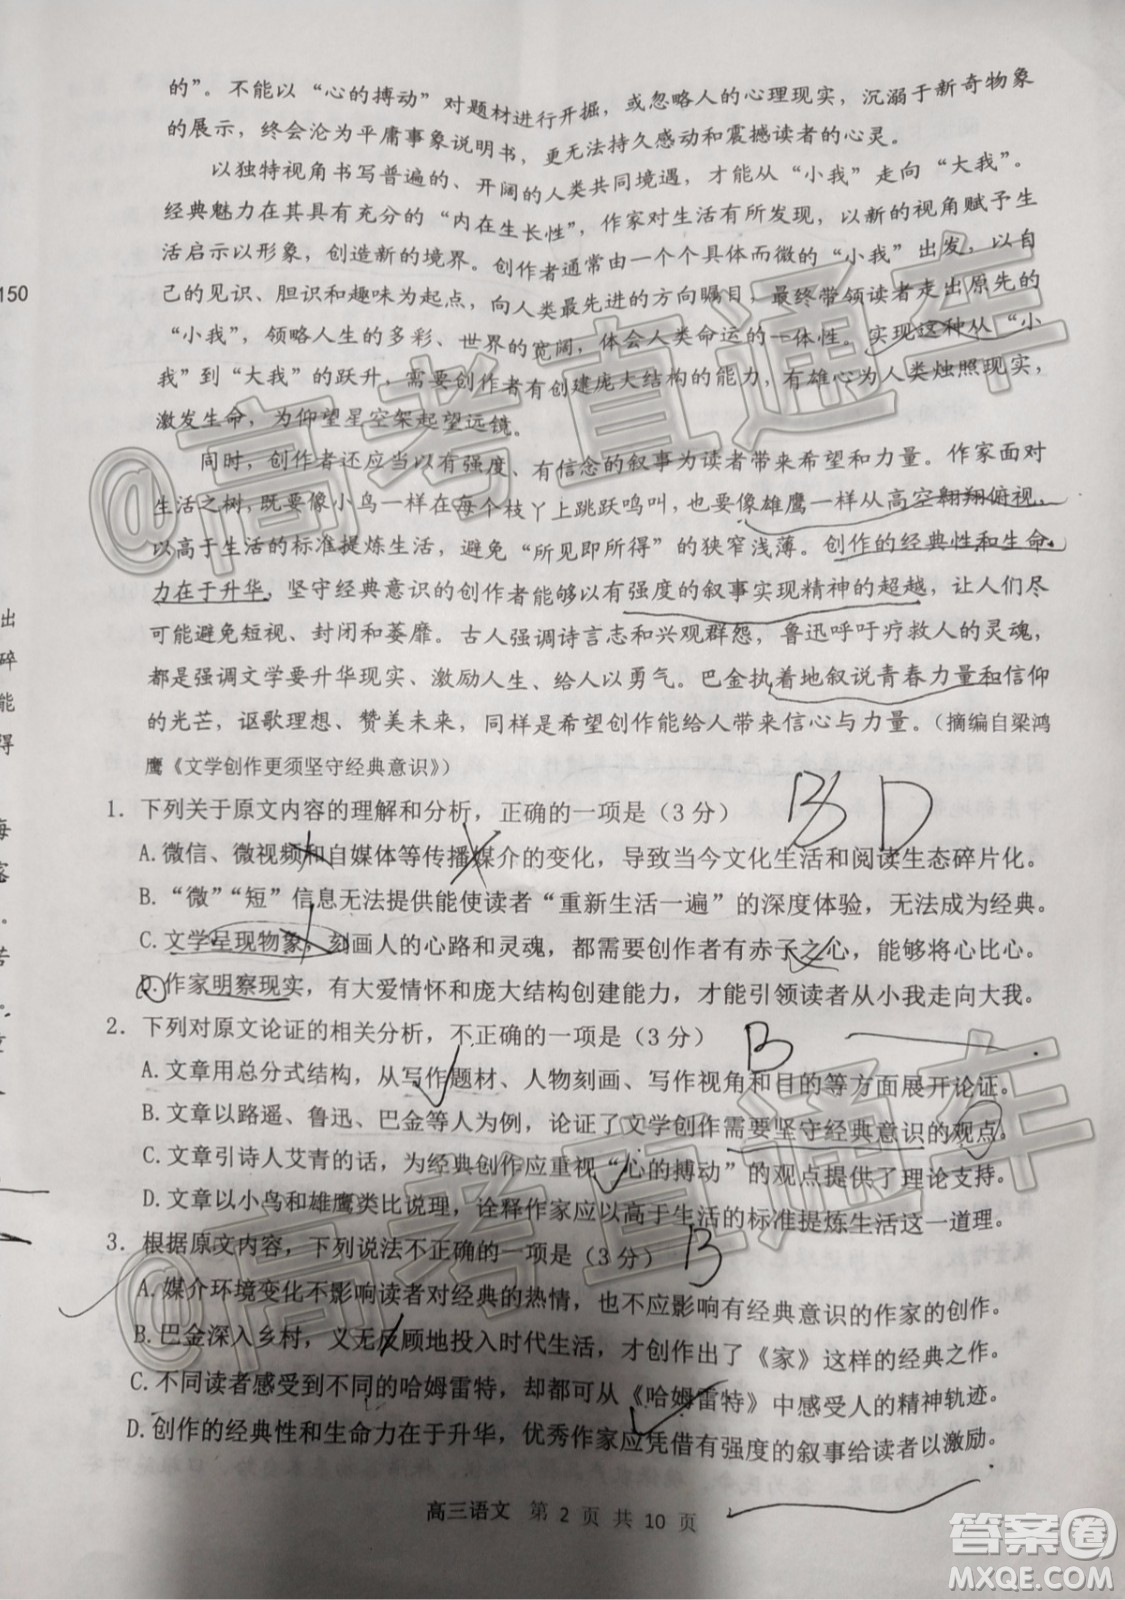 的”。不能以“心的搏动”对题材进行开掘，或忽略人的心理现实，沉溺于新奇物象
的展示，终会沦为平庸事象说明书，更无法持久感动和震撼读者的心灵。
以独特视角书写普遍的、开阔的人类共同境遇，才能从“小我”走向“大我”。
经典魅力在其具有充分的“内在生长性”，作家对生活有所发现，以新的视角赋予生
活启示以形象，创造新的境界。创作者通常由一个个具体而微的“小我”出发，以自
己的见识、胆识和趣味为起点，向人类最先进的方向瞩目，最终带领读者走出原先的
“小我”，领略人生的多彩、世界的宽阔，体会人类命运的一体性。实现这种从“小
我”到“大我”的跃升，需要创作者有创建庞大结构的能力，有雄心为人类烛照现实，
激发生命，为仰望星空架起望远镜。
同时，创作者还应当以有强度、有信念的叙事为读者带来希望和力量。作家面对
生活之树，既要像小鸟一样在每个枝丫上跳跃鸣叫，也要像雄鹰一样从高空翱翔俯视，
以高于生活的标准提炼生活，避免“所见即所得”的狭窄浅薄。创作的经典性和生命
力在于升华，坚守经典意识的创作者能够以有强度的叙事实现精神的超越，让人们尽
可能避免短视、封闭和萎靡。古人强调诗言志和兴观群怨，鲁迅呼吁疗救人的灵魂，
都是强调文学要升华现实、激励人生、给人以勇气。巴金执着地叙说青春力量和信仰
的光芒，讴歌理想、赞美未来，同样是希望创作能给人带来信心与力量。（摘编自梁鸿
鹰《文学创作更须坚守经典意识》）
1．下列关于原文内容的理解和分析，正确的一项是（3分） B D
A.微信、微视频和自媒体等传播媒介的变化，导致当今文化生活和阅读生态碎片化。
B.“微”“短”信息无法提供能使读者“重新生活一遍”的深度体验，无法成为经典。
C.文学呈现物象，刻画人的心路和灵魂，需要创作者有赤子之心，能够将心比心。
D.作家明察现实，有大爱情怀和庞大结构创建能力，才能引领读者从小我走向大我。
2．下列对原文论证的相关分析，不正确的一项是（3分） B
A.文章用总分式结构，从写作题材、人物刻画、写作视角和目的等方面展开论证。
B.文章以路遥、鲁迅、巴金等人为例，论证了文学创作需要坚守经典意识的观点。
C.文章引诗人艾青的话，为经典创作应重视“心的搏动”的观点提供了理论支持。
D.文章以小鸟和雄鹰类比说理，诠释作家应以高于生活的标准提炼生活这一道理。
3．根据原文内容，下列说法不正确的一项是（3分） B
A.媒介环境变化不影响读者对经典的热情，也不应影响有经典意识的作家的创作。
B.巴金深入乡村，义无反顾地投入时代生活，才创作出了《家》这样的经典之作。
C.不同读者感受到不同的哈姆雷特，却都可从《哈姆雷特》中感受人的精神轨迹。
D.创作的经典性和生命力在于升华，优秀作家应凭借有强度的叙事给读者以激励。
高三语文 第 2 页 共 10 页
150
出
碎
能
得
@高考直通车
@高考直通车
答案圈
MXQE.COM